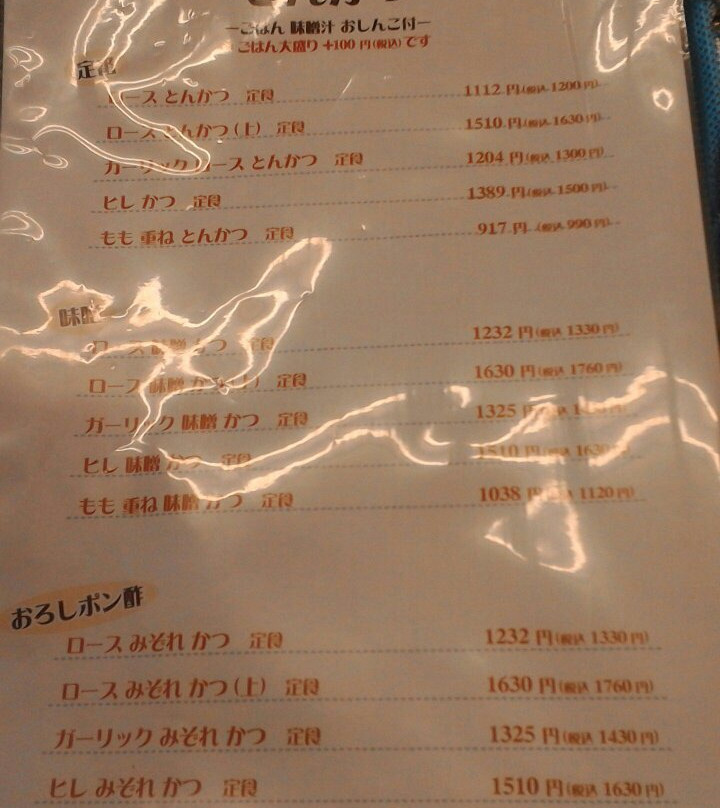 とんかつ
―ごはん 味噌汁 おしんこ付―
ごはん大盛り +100 円(税込)です
定番
ロース とんかつ 定食 1112 円(税込 1200 円)
ロース とんかつ(上) 定食 1510 円(税込 1630 円)
ガーリック ロース とんかつ 定食 1204 円(税込 1300 円)
ヒレ かつ 定食 1389 円(税込 1500 円)
もも 重ね とんかつ 定食 917 円(税込 990 円)
味噌
ロース 味噌 かつ 定食 1232 円(税込 1330 円)
ロース 味噌 かつ(上) 定食 1630 円(税込 1760 円)
ガーリック 味噌 かつ 定食 1325 円(税込 円)
ヒレ 味噌 かつ 定食 1510 円(税込 1630 円)
もも 重ね 味噌 かつ 定食 1038 円(税込 1120 円)
おろしポン酢
ロース みぞれ かつ 定食 1232 円(税込 1330 円)
ロース みぞれ かつ(上) 定食 1630 円(税込 1760 円)
ガーリック みぞれ かつ 定食 1325 円(税込 1430 円)
ヒレ みぞれ かつ 定食 1510 円(税込 1630 円)